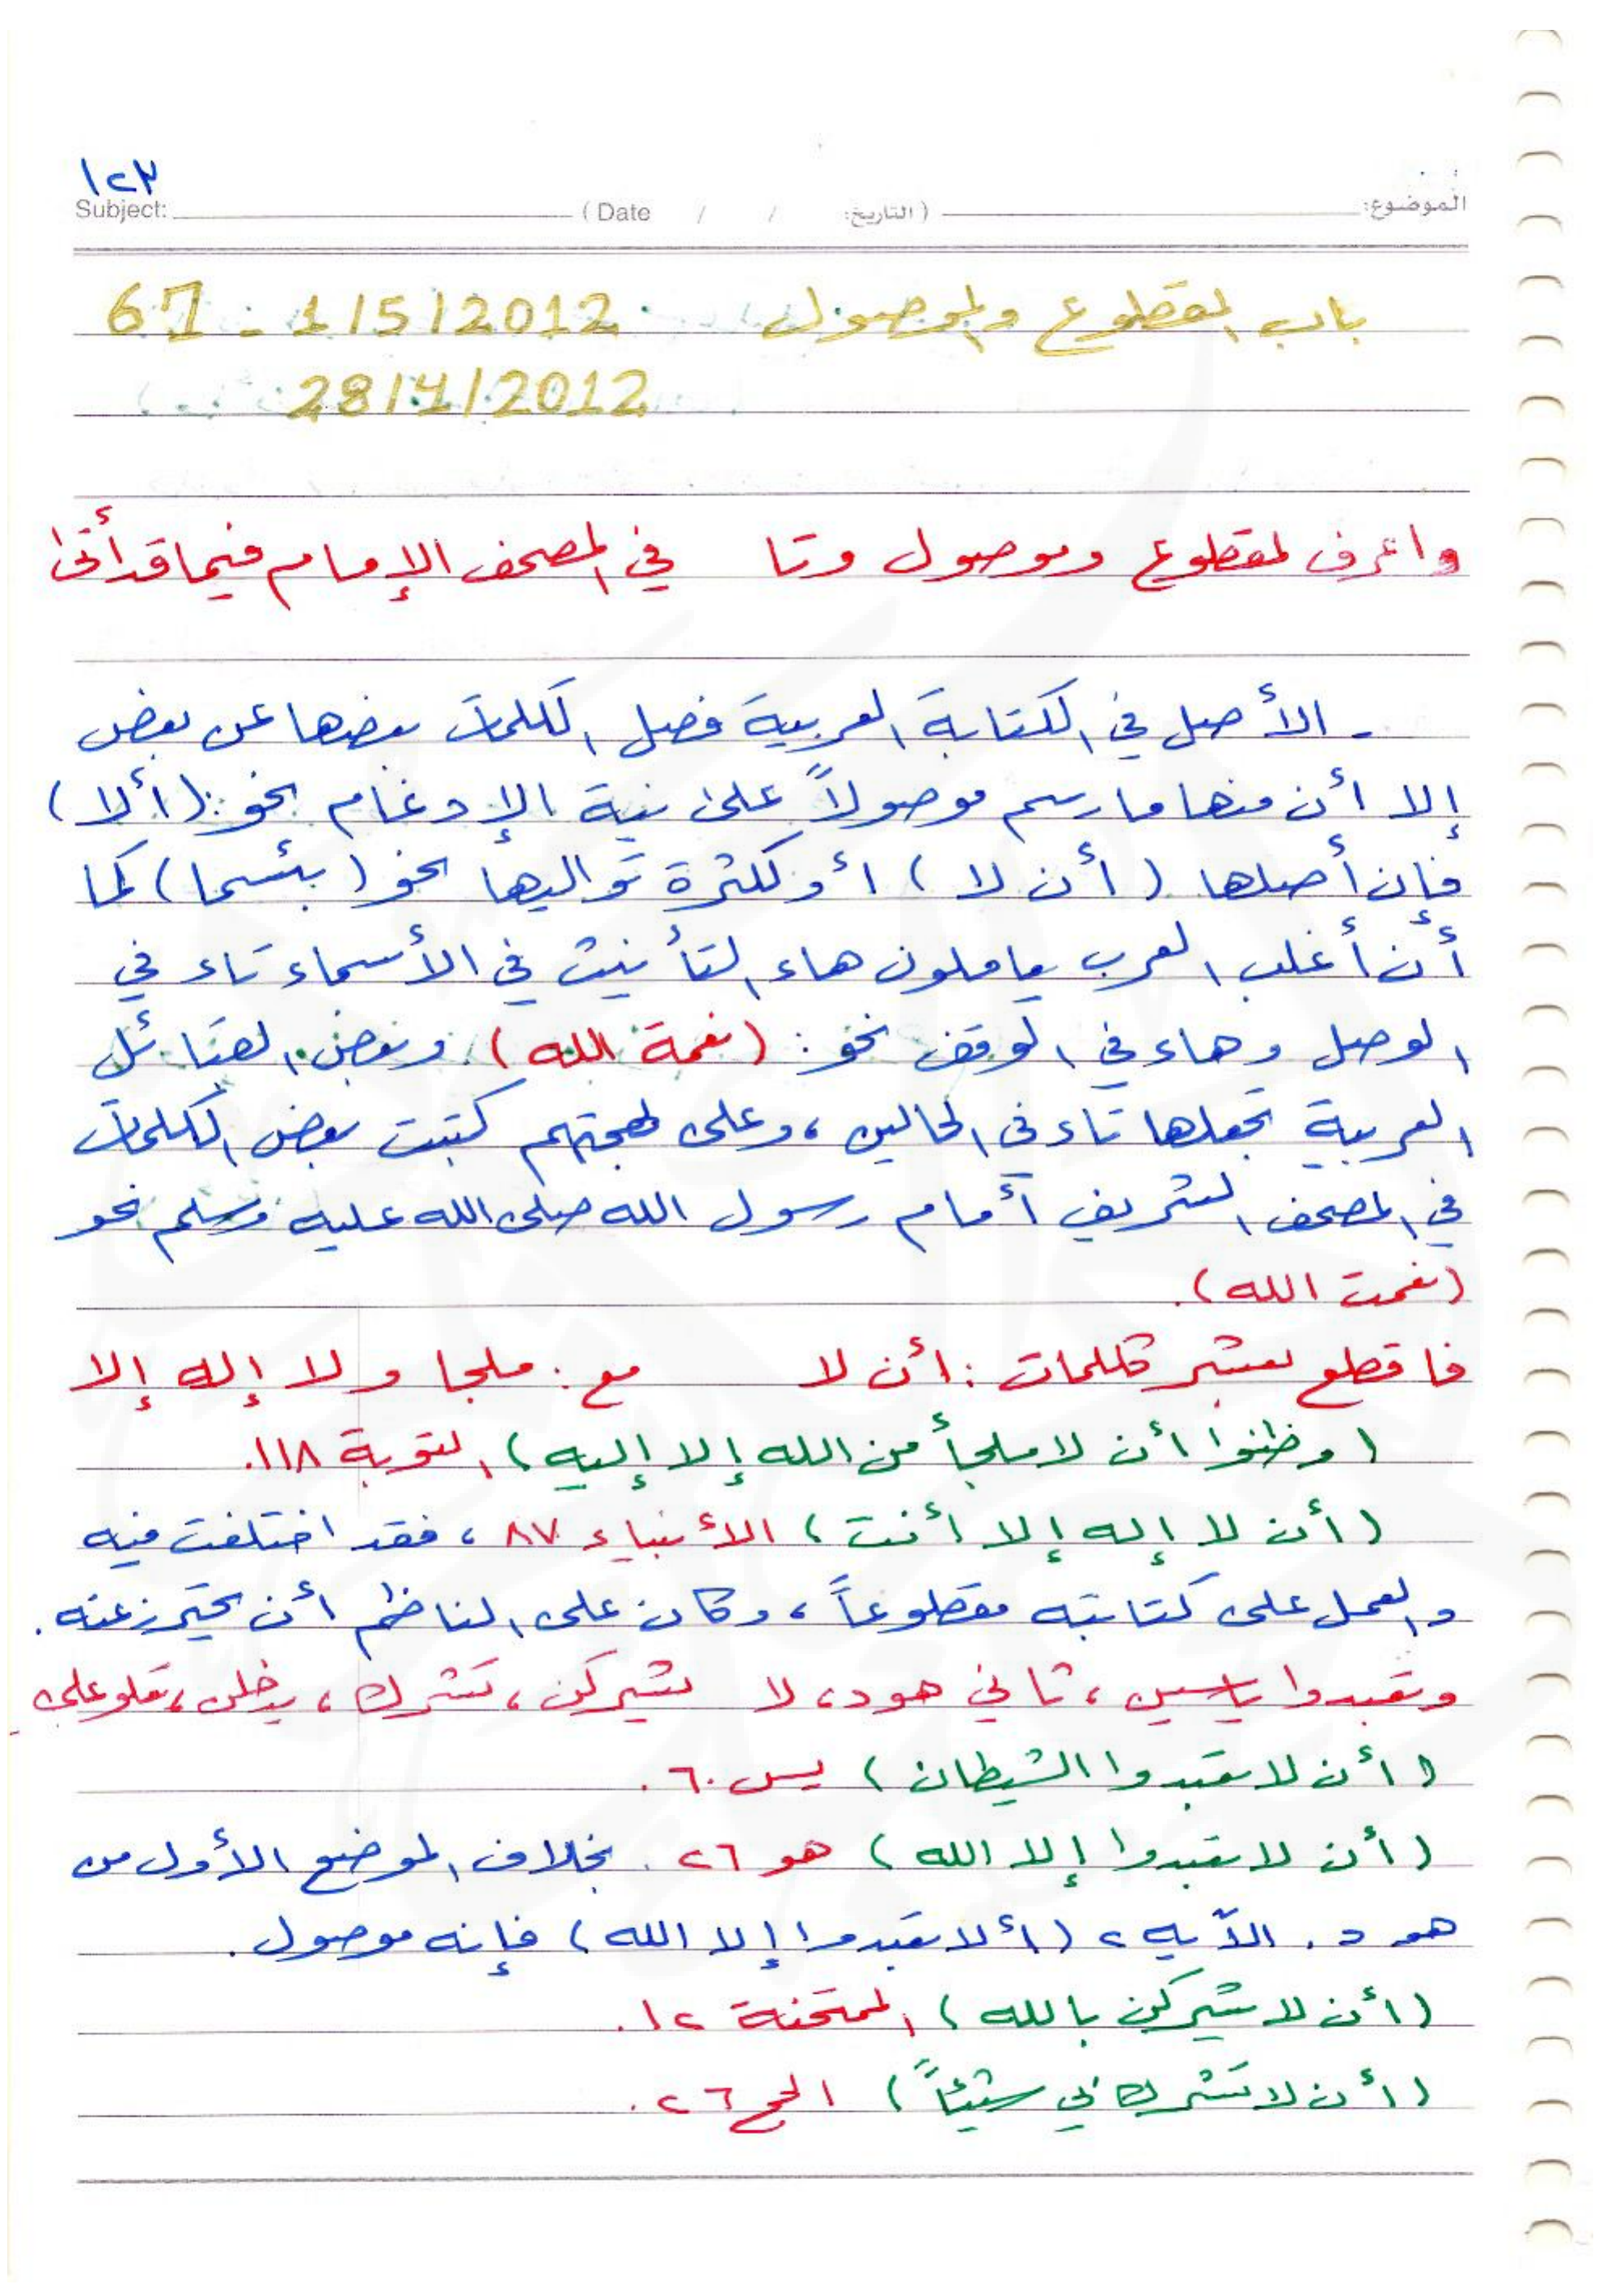 ١٢٣
الموضوع: (التاريخ: / / Date) Subject:
باب المقطوع والموصول 1/5/2012 - 67
28/4/2012
واعرف لمقطوع وموصول وتا في المصحف الإمام فيما قد أتى
- الأصل في الكتابة العربية فصل الكلمات بعضها عن بعض
إلا أن منها ما رسم موصولاً على نية الإدغام نحو: (ألا)
فإن أصلها (أن لا) أو لكثرة تواليها نحو (بئسما) كما
أن أغلب العرب يعاملون هاء التأنيث في الأسماء تاء في
الوصل وهاء في الوقف نحو: (نعمة الله). وبعض القبائل
العربية تجعلها تاء في الحالين، وعلى لهجتهم كتبت بعض الكلمات
في المصحف الشريف أمام رسول الله صلى الله عليه وسلم نحو
(نعمت الله).
فاقطع بعشر كلمات: أن لا مع: ملجا ولا إله إلا
(وظنوا أن لا ملجأ من الله إلا إليه) التوبة ١١٨.
(أن لا إله إلا أنت) الأنبياء ٨٧، فقد اختلفت فيه
والعمل على كتابته مقطوعاً، وكان على الناظم أن يحترز عنه.
وتعبدوا ياسين، ثاني هود، لا يشركن، تشرك، يدخلن، تعلو على
(أن لا تعبدوا الشيطان) يس ٦٠.
(أن لا تعبدوا إلا الله) هو ٢٦. بخلاف الموضع الأول من
هود. الآية ٢ (ألا تعبدوا إلا الله) فإنه موصول.
(أن لا يشركن بالله) الممتحنة ١٢.
(أن لا تشرك بي شيئاً) الحج ٢٦.